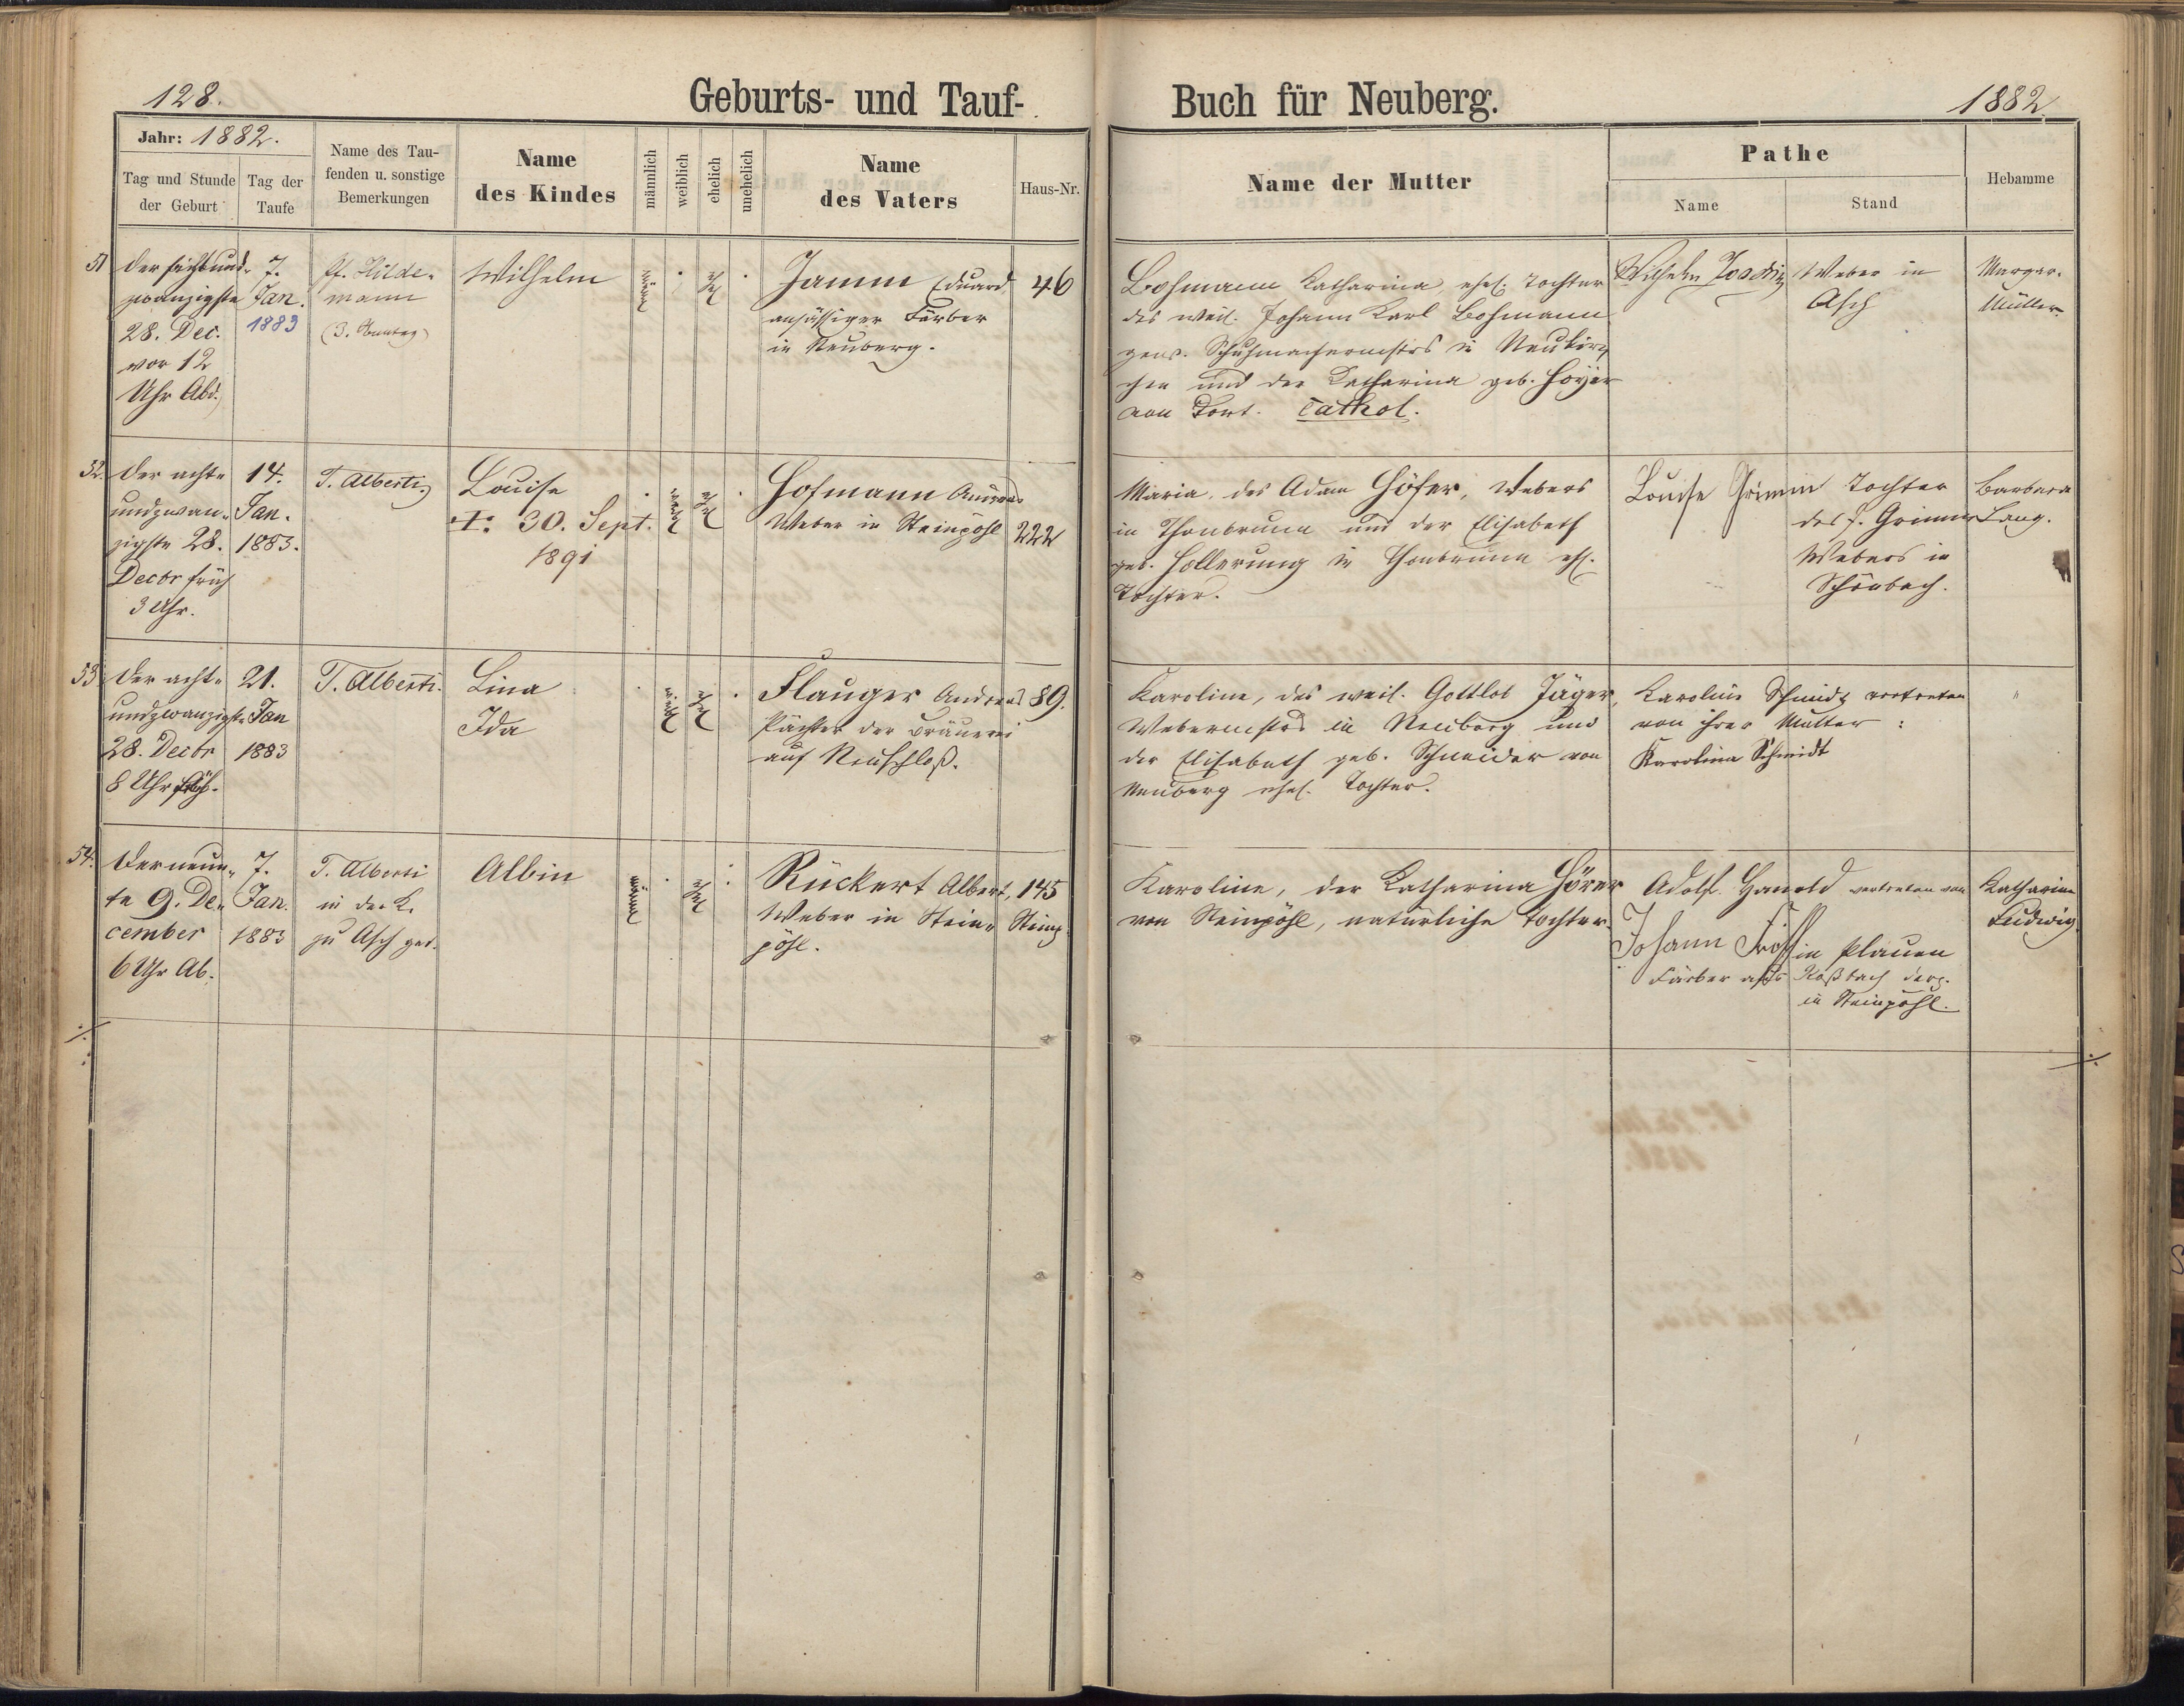 128.
Geburts- und Tauf-
Buch für Neuberg.
1882.
Jahr: 1882.
Tag und Stunde der Geburt
Tag der Taufe
Name des Tau-
fenden u. sonstige
Bemerkungen
Name
des Kindes
männlich
weiblich
ehelich
unehelich
Name
des Vaters
Haus-Nr.
Name der Mutter
Pathe
Name
Stand
Hebamme
51
der achtund-
zwanzigste
28. Dec.
vor 12
Uhr Abd.
7.
Jan.
1883
Pf. Hilde-
mann
Wilhelm
männl
ehel
Jamm Eduard
ansässiger Färber
in Neuberg.
46
Bohmann Katharina ehel. Tochter
des weil. Johann Karl Bohmann
gew. Schuhmachermstrs in Neukir-
chen und der Katharina geb. Hoyer
von dort. cathol.
Wilhelm
Weber in
Asch
Margar.
Müller.
52.
der acht-
undzwan-
zigste 28.
Decbr früh
3 Uhr.
14.
Jan.
1883.
T. Alberti
Louise
†: 30. Sept.
1891
weibl
ehel
Hofmann Andreas
Weber in Steinpöhl
222
Maria, des Adam Höfer, Webers
in Thonbrunn und der Elisabeth
geb. Hollerung in Thonbrunn ehl.
Tochter.
Louise Grimm
Tochter
des J. Grimm
Webers in
Schönbach.
Barbara
Lang.
53
der acht-
undzwanzigste
28. Decbr
8 Uhr früh.
21.
Jan
1883
T. Alberti.
Lina
Ida
weibl
ehel
Flauger Andreas
Pächter der Bräuerei
auf Neuschloß.
89.
Karoline, des weil. Gottlob Jäger,
Webermstrs in Neuberg und
der Elisabeth geb. Schneider von
Neuberg ehel. Tochter.
Karoline Schmidt vertreten
von ihrer Mutter:
Karolina Schmidt
"
54.
Der neun-
te 9. De-
cember
6 Uhr Ab.
7.
Jan.
1883
T. Alberti
in der K.
zu Asch get.
Albin
männl
ehel
Rückert Albert,
Weber in Stein-
pöhl.
145
Steinp.
Karoline, der Katharina Hörer
von Steinpöhl, natürliche Tochter.
Adolf Hanold vertreten von
Johann
in Plauen
Färber aus Roßbach
in Steinpöhl.
Katharina
Ludwig